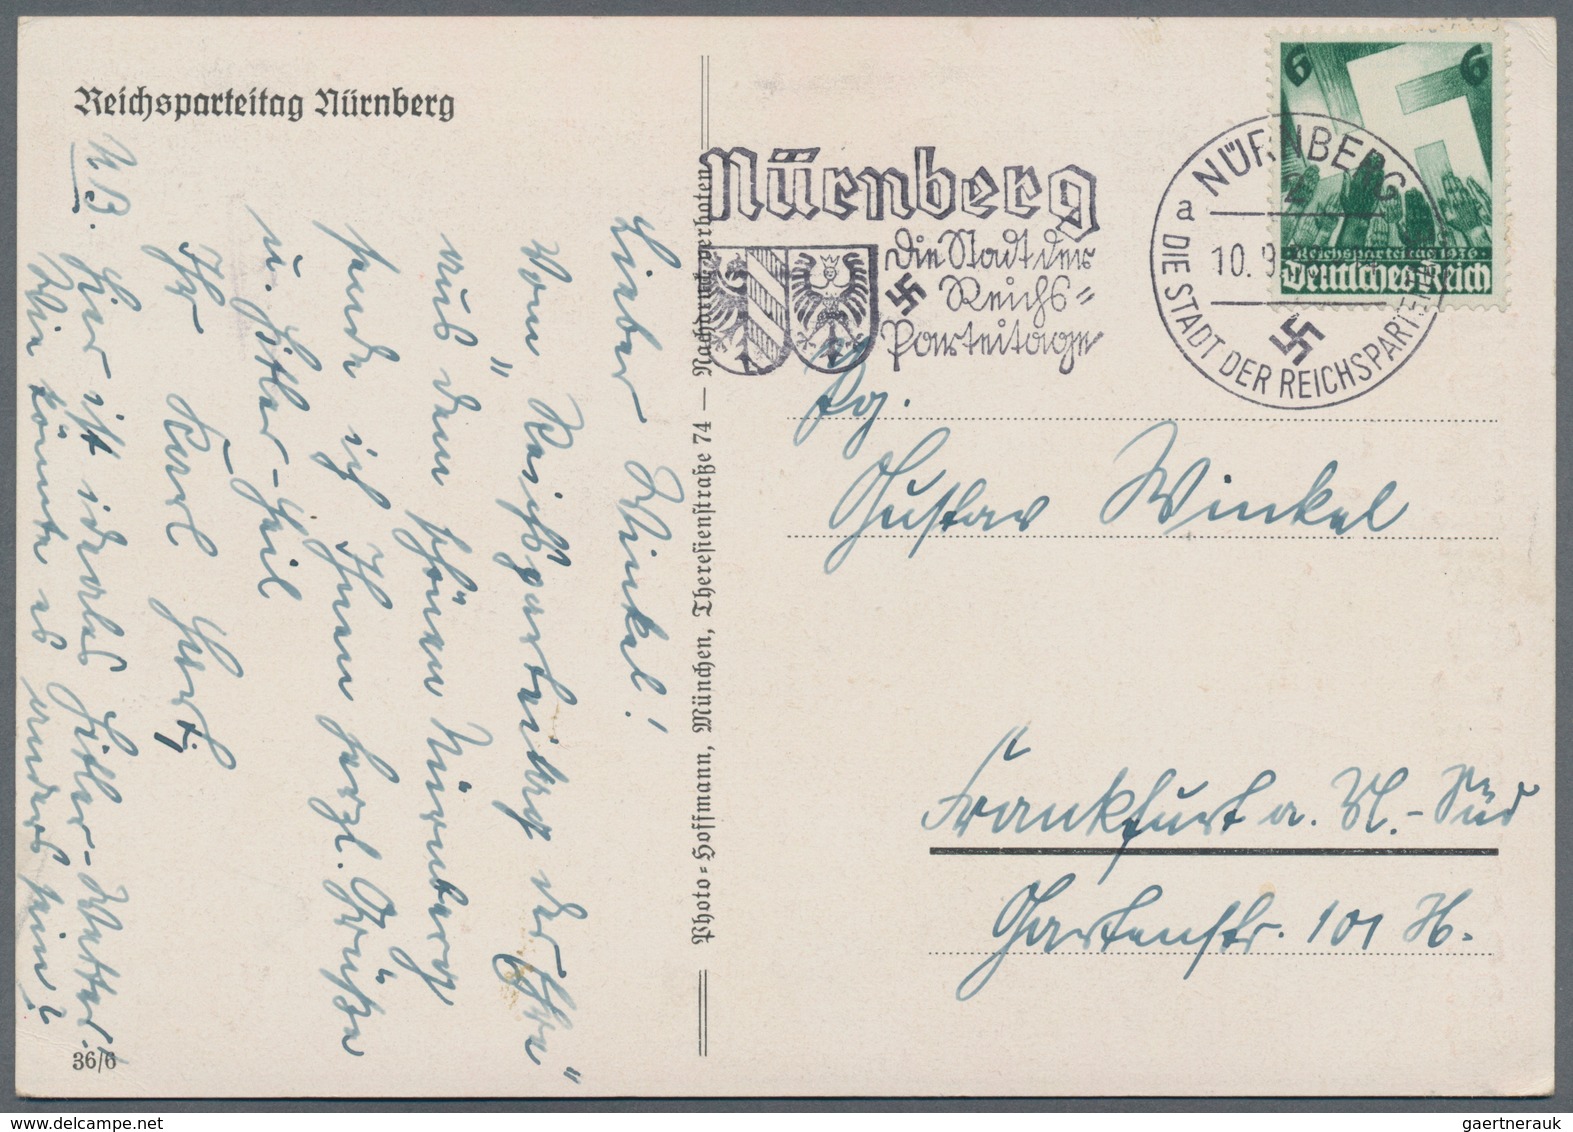 Reichsparteitag Nürnberg
Lieber Winkel!
Vom "Reichsparteitag der Ehre"
aus dem schönen Nürnberg
sende ich Ihnen herzl. Grüße
u. Hitler-Heil
Ihr Karl
N.B. Hier ist ideales Hitler-Wetter.
Wie könnte es anders sein?
36/6
Photo-Hoffmann, München, Theresienstraße 74 — Nachdruck verboten
Nürnberg
Die Stadt der
Reichs-
Parteitage
NÜRNBERG
2
a
10.9.
DIE STADT DER REICHSPARTEI
6 6
Reichsparteitag 1936
Deutsches Reich
Pg.
Gustav Winkel
Frankfurt a. M.-Süd
Gartenstr. 101 H.
gaertnerauk